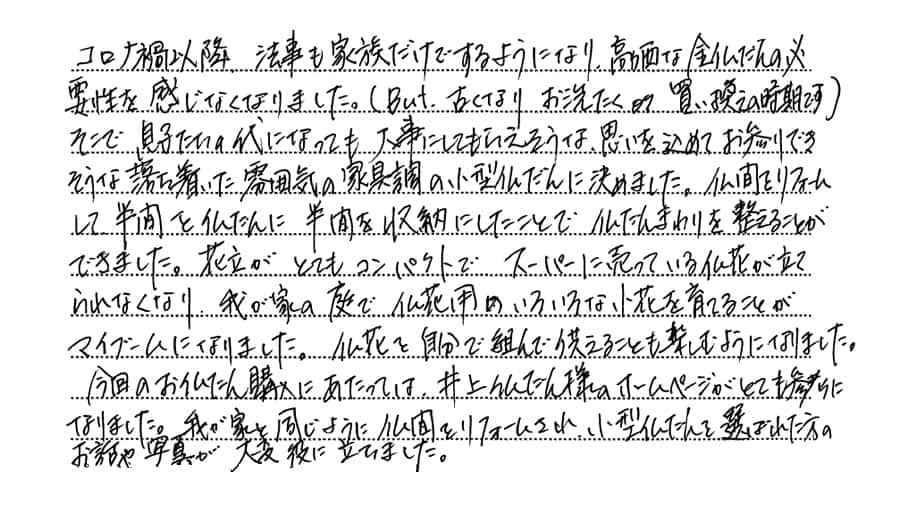 コロナ禍以降、法事も家族だけでするようになり、高価な金仏だんの必
要性を感じなくなりました。(But 古くなり お洗たく 買い換えの時期です)
そこで息子たちの代になっても大事にしてもらえそうな、思いを込めてお参りでき
そうな落ち着いた雰囲気の家具調の小型仏だんに決めました。仏間をリフォーム
して半間を仏だんに半間を収納にしたことで仏だんまわりを整えることが
できました。花立がとてもコンパクトでスーパーに売っている仏花が立て
られなくなり、我が家の庭で仏花用のいろいろな小花を育てることが
マイブームになりました。仏花を自分で組んで供えることも楽しむようになりました。
今回のお仏だん購入にあたっては、井上仏だん様のホームページがとても参考に
なりました。我が家と同じように仏間をリフォームされ、小型仏だんを選ばれた方の
お話や写真が大変役に立ちました。